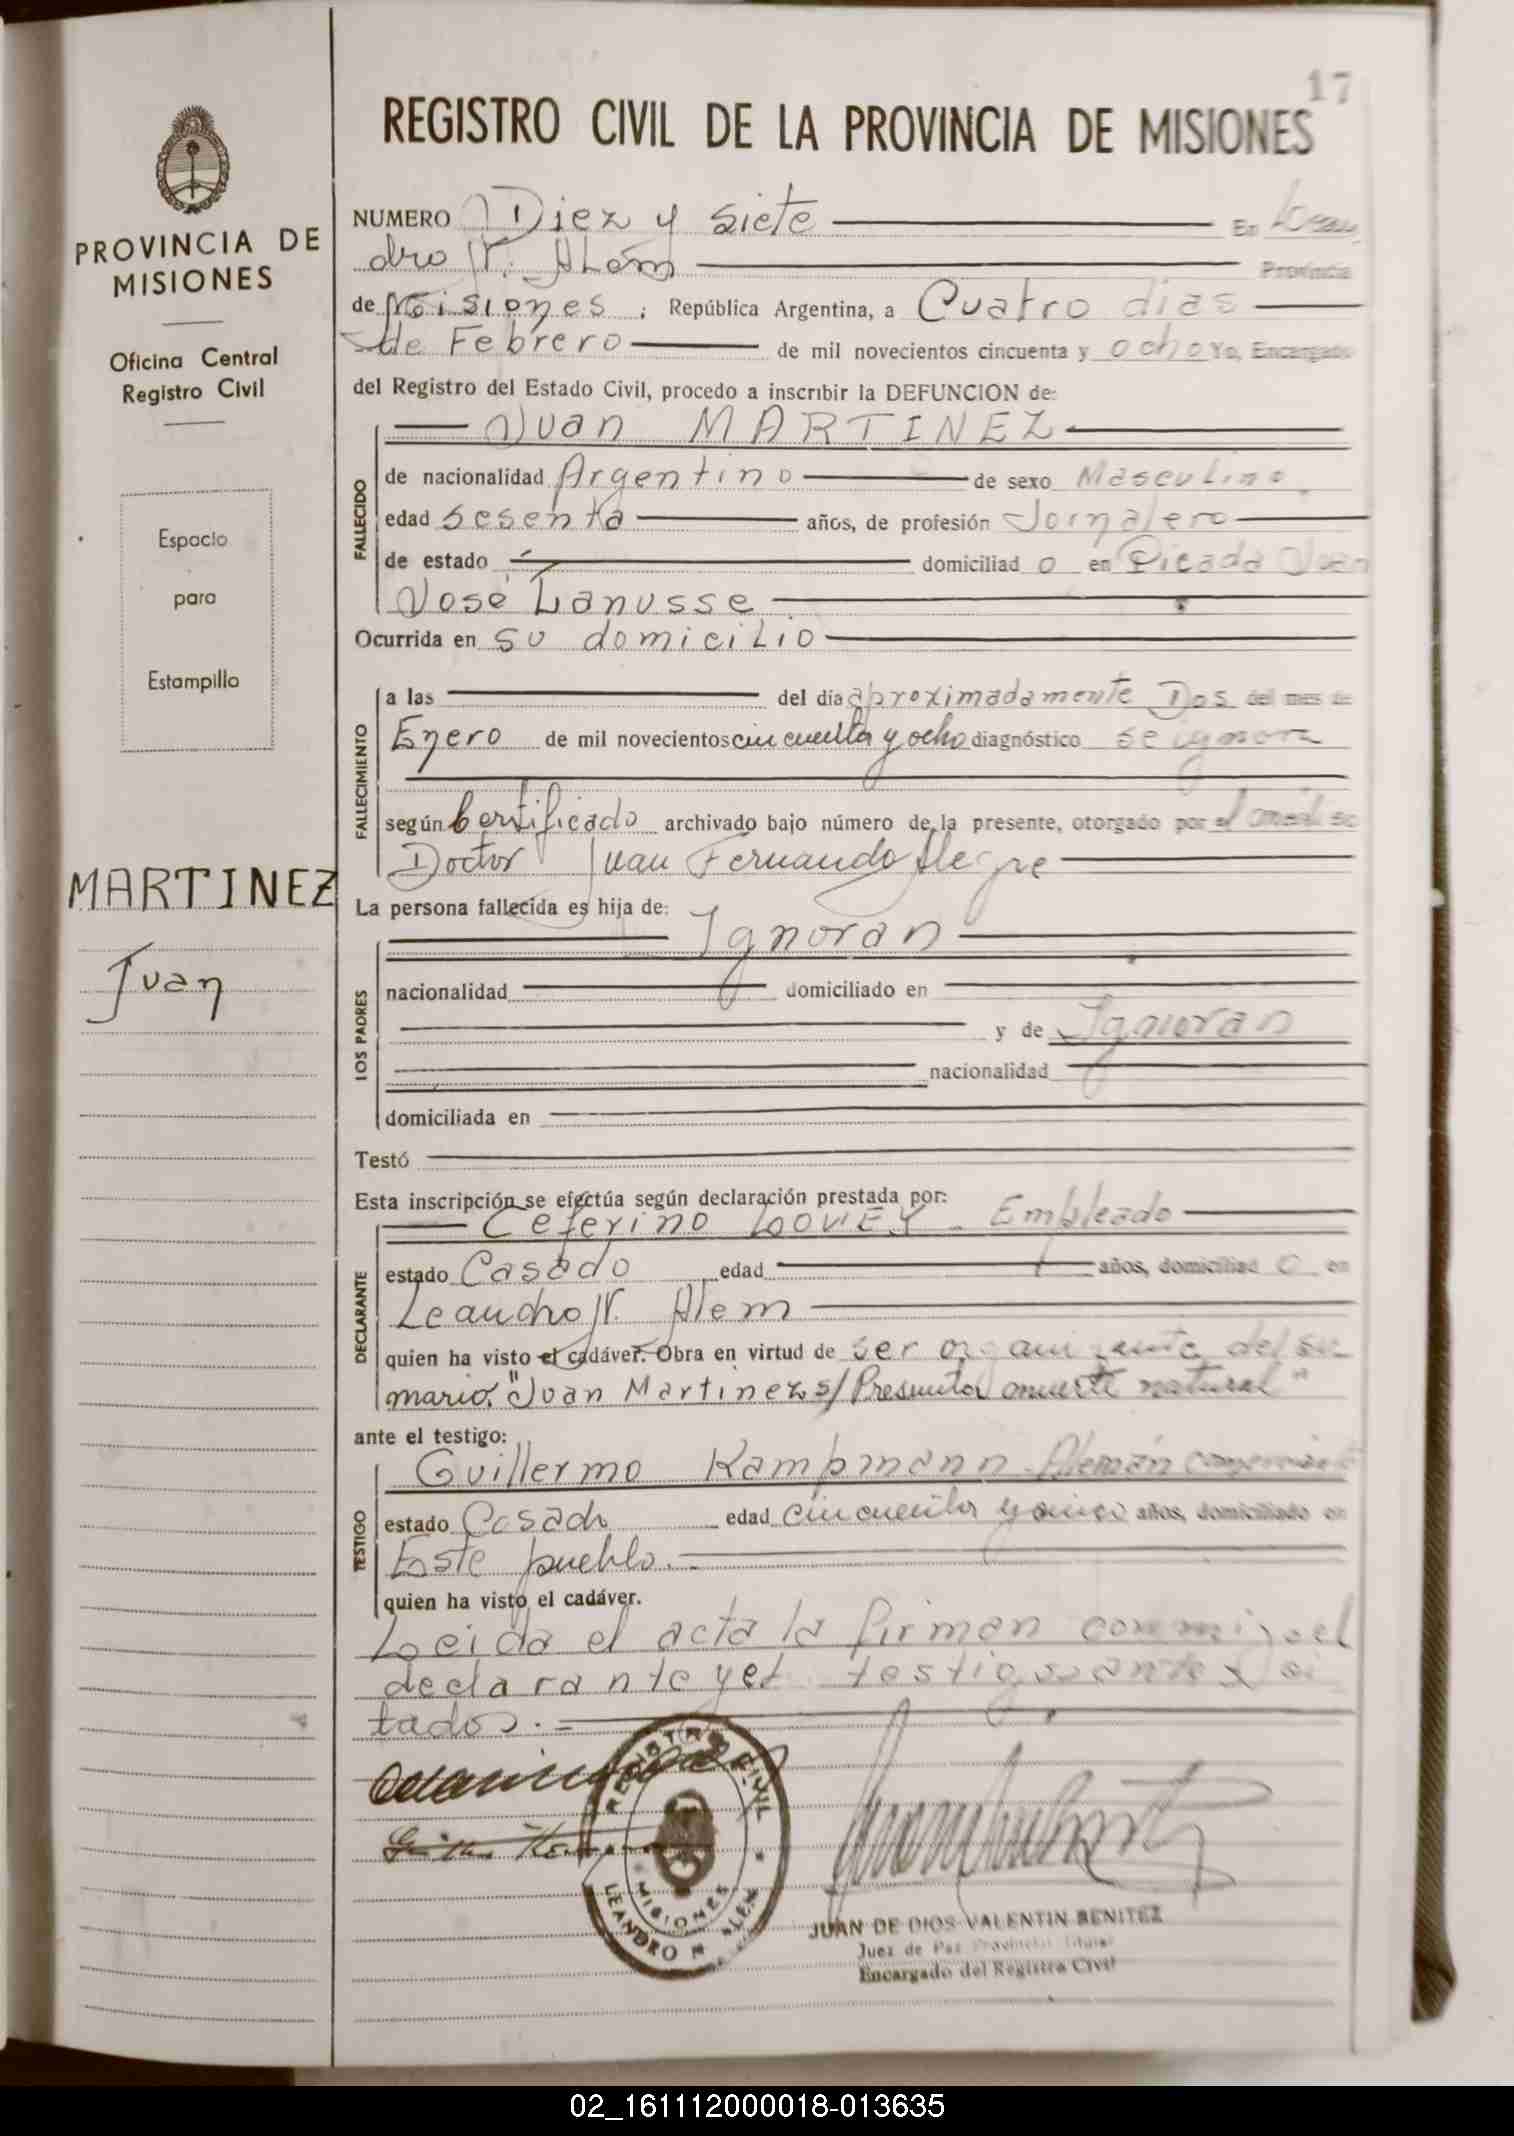 17
REGISTRO CIVIL DE LA PROVINCIA DE MISIONES
PROVINCIA DE
MISIONES
Oficina Central
Registro Civil
Espacio
para
Estampilla
MARTINEZ
Juan
NUMERO Diez y siete En Lean
dro N. Alem Provincia
de Misiones ; República Argentina, a Cuatro dias
de Febrero de mil novecientos cincuenta y ocho Yo, Encargado
del Registro del Estado Civil, procedo a inscribir la DEFUNCION de:
Juan MARTINEZ
FALLECIDO
de nacionalidad Argentino de sexo Masculino
edad sesenta años, de profesión Jornalero
de estado domiciliado en Picada Juan
José Lanusse
Ocurrida en su domicilio
FALLECIMIENTO
a las del día aproximadamente Dos del mes de
Enero de mil novecientos cincuenta y ocho diagnóstico se ignora
según Certificado archivado bajo número de la presente, otorgado por el médico
Doctor Juan Fernando Alegre
La persona fallecida es hija de:
Ignoran
LOS PADRES
nacionalidad domiciliado en
y de Ignoran
nacionalidad
domiciliada en
Testó
Esta inscripción se efectúa según declaración prestada por:
Ceferino Empleado
DECLARANTE
estado Casado edad años, domiciliado en
Leandro N. Alem
quien ha visto el cadáver. Obra en virtud de ser organizante del su
mario. "Juan Martinez s/Presunta muerte natural"
ante el testigo:
Guillermo Kampmann - Alemán comerciante
TESTIGO
estado Casado edad cincuenta y cinco años, domiciliado en
Este pueblo.
quien ha visto el cadáver.
Leida el acta la firman conmigo el
declarante y el testigo antes ci
tados.-
REGISTRO CIVIL
MISIONES
LEANDRO N. ALEM
JUAN DE DIOS VALENTIN BENITEZ
Juez de Paz Provincial Titular
Encargado del Registro Civil
02_161112000018-013635